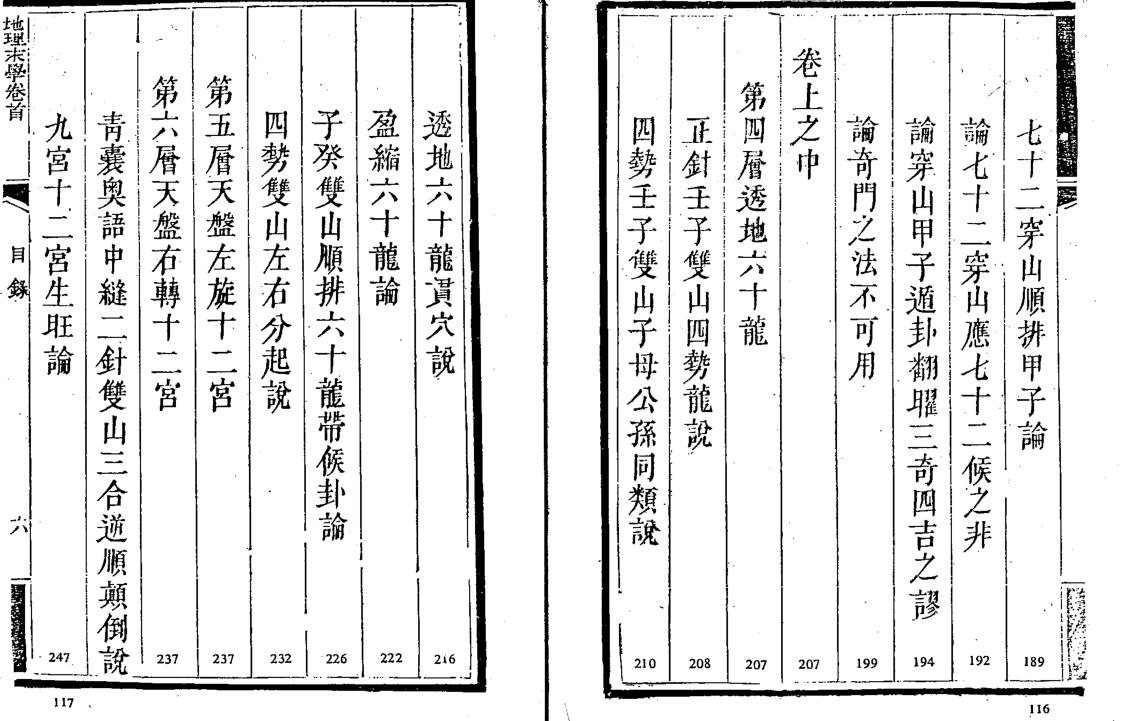 七十二穿山順排甲子論 189
論七十二穿山應七十二候之非 192
論穿山甲子遁卦翻曜三奇四吉之謬 194
論奇門之法不可用 199
卷上之中 207
第四層透地六十龍 207
正針壬子雙山四勢龍說 208
四勢壬子雙山子母公孫同類說 210
116
透地六十龍貫穴說 216
盈縮六十龍論 222
子癸雙山順排六十龍帶候卦論 226
四勢雙山左右分起說 232
第五層天盤左旋十二宮 237
第六層天盤右轉十二宮 237
青囊奧語中縫二針雙山三合逆順顛倒說
九宮十二宮生旺論 247
地理末學卷首 目錄 六
117